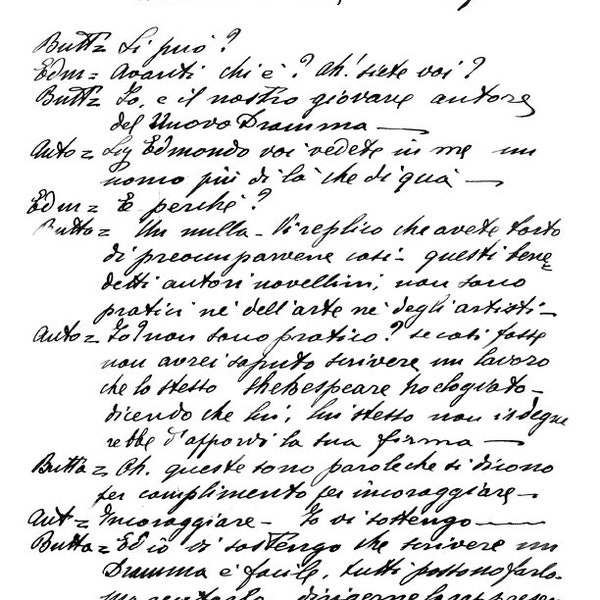 Butt= Si può?
Edm= Avanti chi è? Ah! siete voi?
Butt= Io, e il nostro giovane autore
del Nuovo Dramma —
Auto= Sig Edmondo voi vedete in me un
uomo più di là che di qua —
Edm= E perché?
Butta= Un nulla - Vi replico che avete torto
di preocuparvene così - questi bene=
detti autori novellini, non sono
pratici nè dell'arte nè degli artisti -
Auto= Io? non sono pratico? se così fosse
non avrei saputo scrivere un lavoro
che lo stesso Shekespeare
dicendo che lui, lui stesso non isdegne
rebbe d'apporvi la sua firma —
Butta= Oh. queste sono parole che si dicono
per complimento per incoraggiare -
Aut= Incoraggiare - Io vi sostengo —
Butta= Ed io vi sostengo che scrivere un
Dramma è facile, tutti possono farlo.